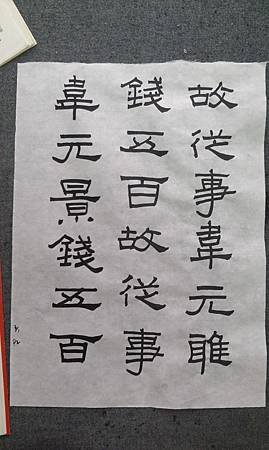 故从事韋元雎
錢五百故从事
韋元景錢五百